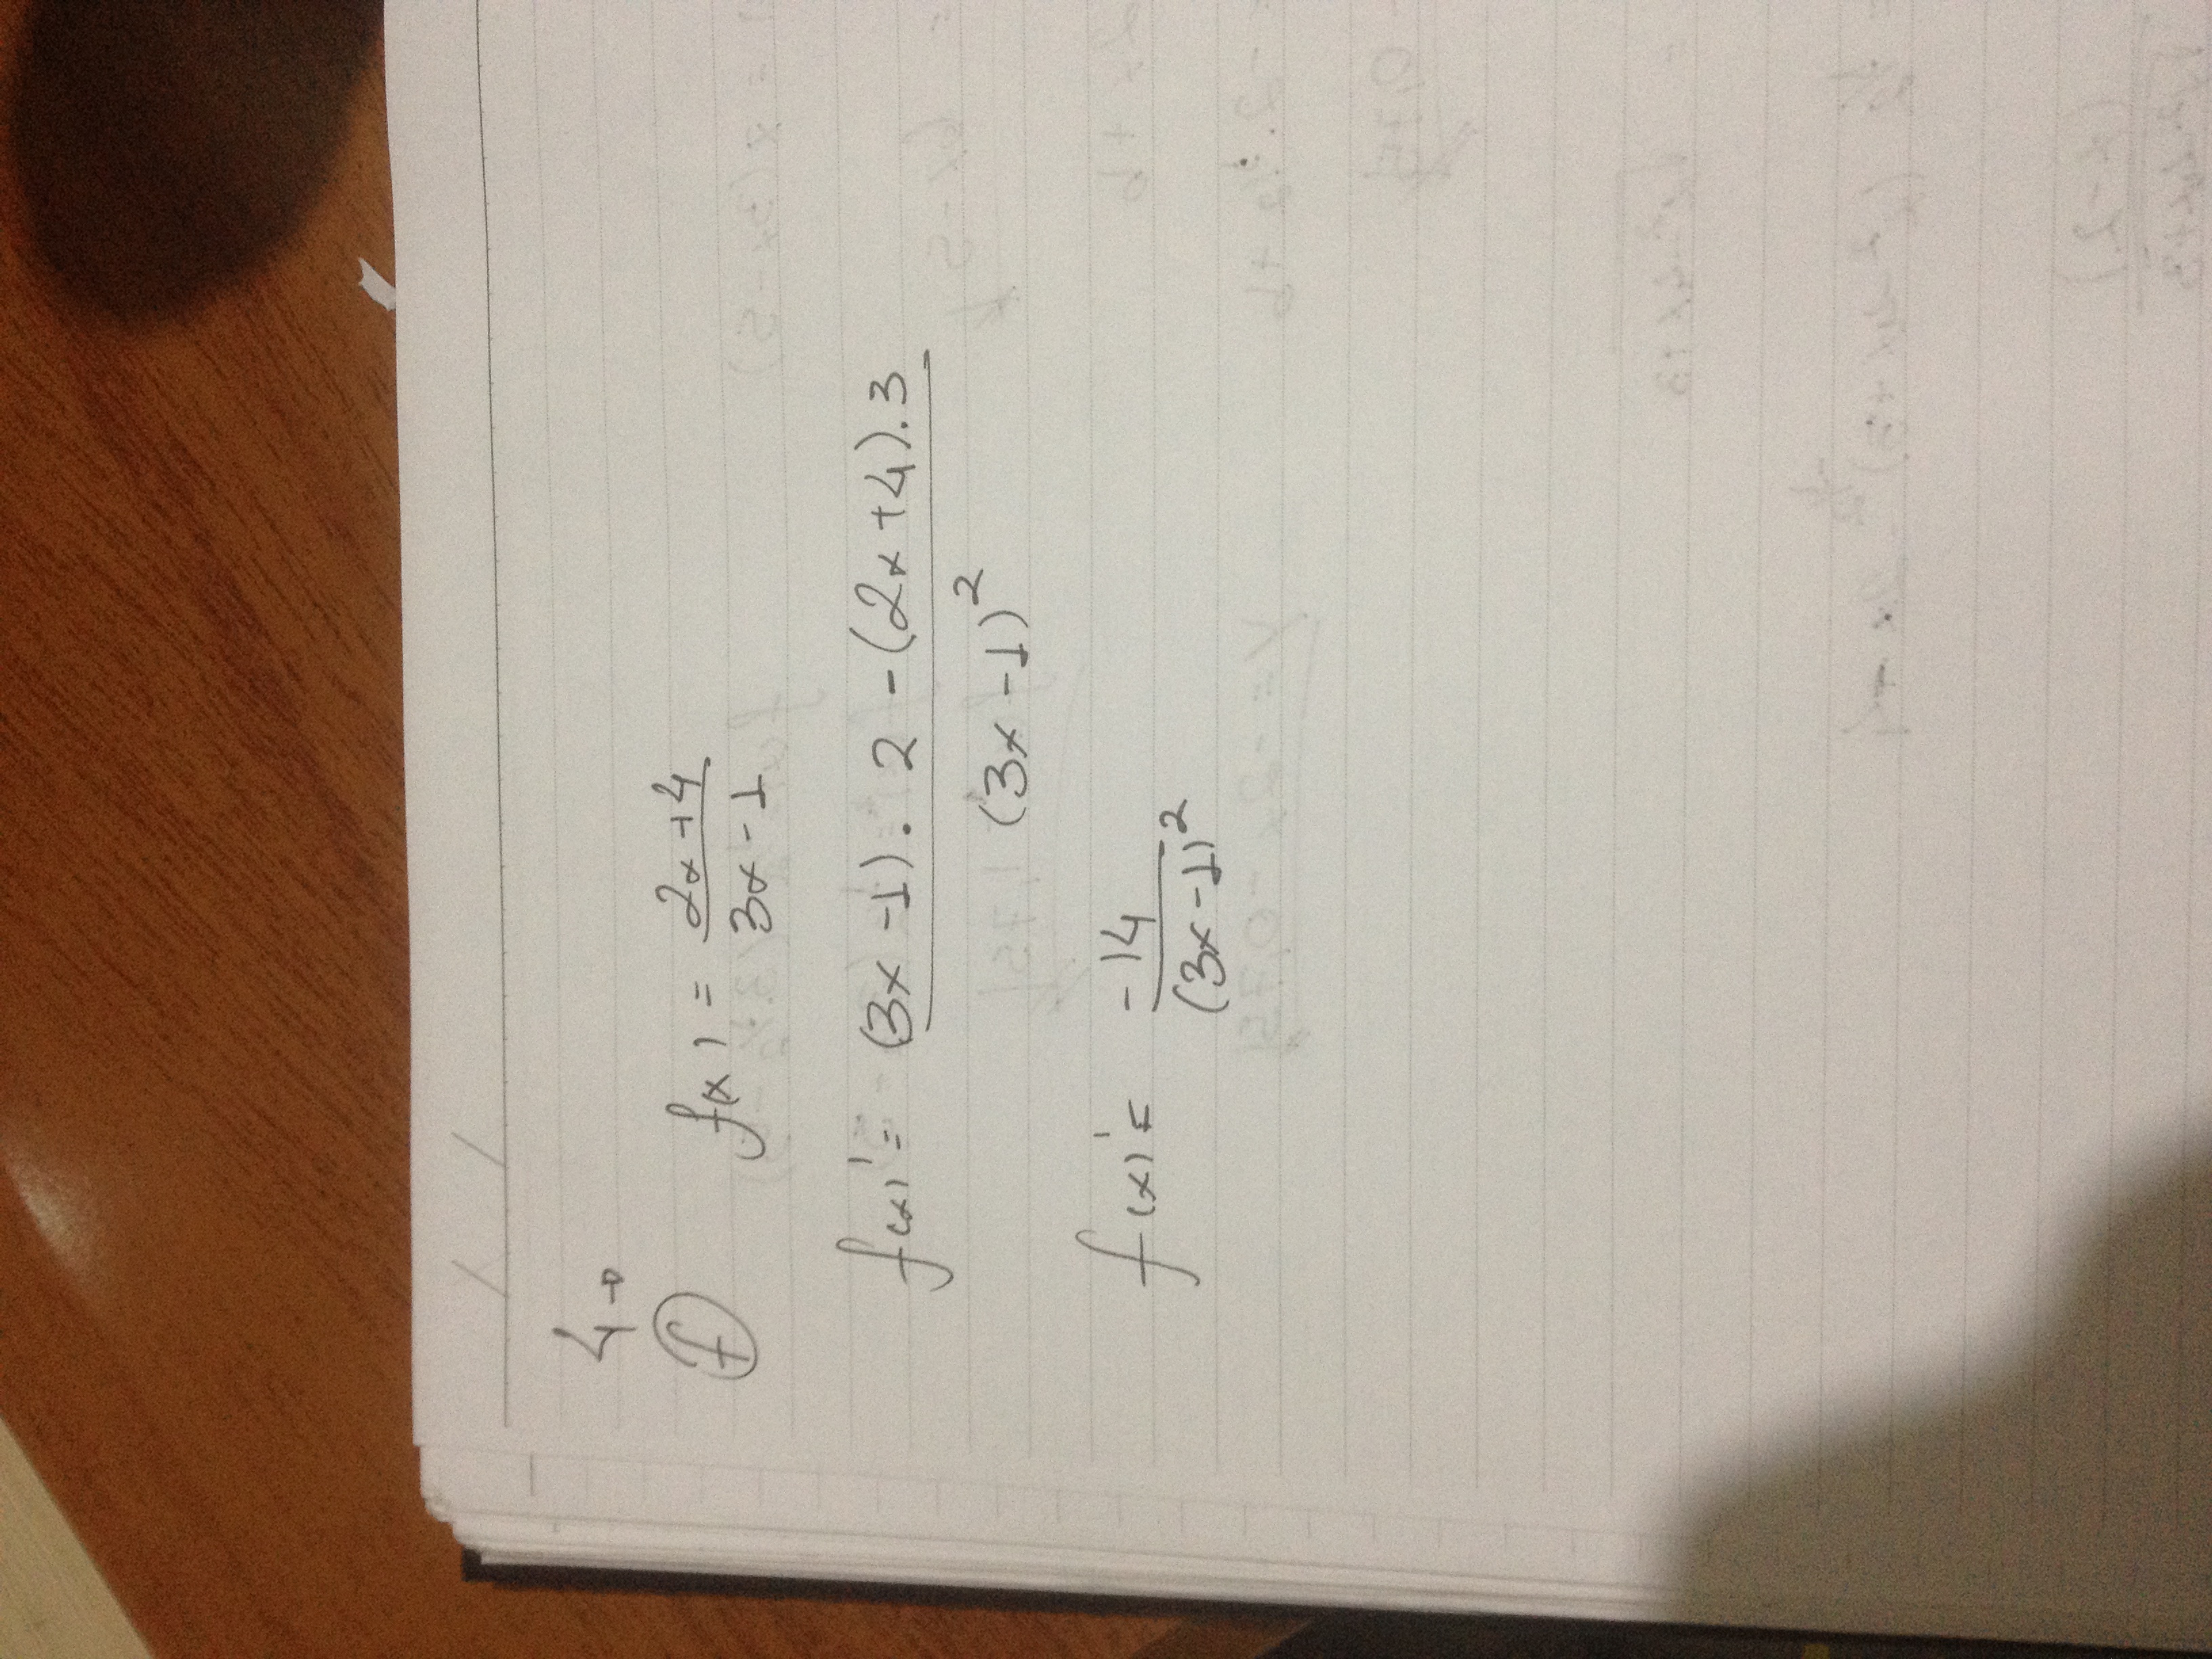 / /
4→
f f(x) = 2x+4 / 3x-1
f(x)' = (3x-1). 2 -(2x+4).3 / (3x-1)²
f(x)' = -14 / (3x-1)²